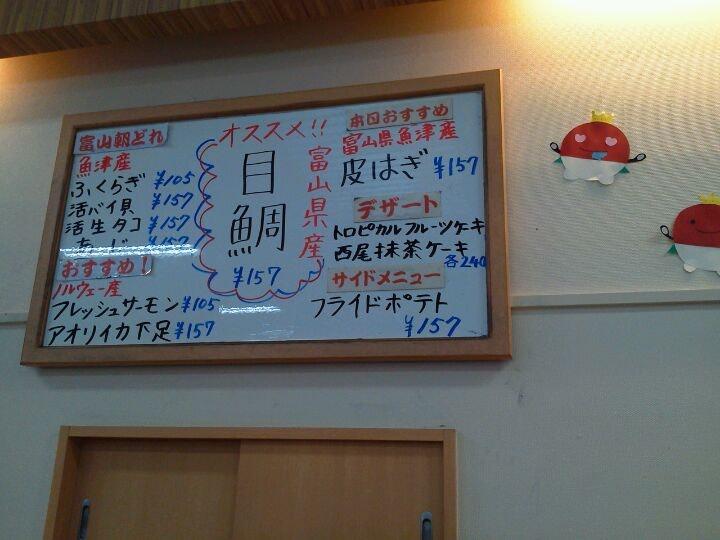 富山朝どれ
魚津産
ふくらぎ ¥105
活バイ貝 ¥157
活生タコ ¥157
あじ ¥157
おすすめ！
ノルウェー産
フレッシュサーモン ¥105
アオリイカ下足 ¥157
オススメ!!
目鯛
富山県産
¥157
本日おすすめ
富山県魚津産
皮はぎ ¥157
デザート
トロピカルフルーツケーキ
西尾抹茶ケーキ
各240
サイドメニュー
フライドポテト
¥157